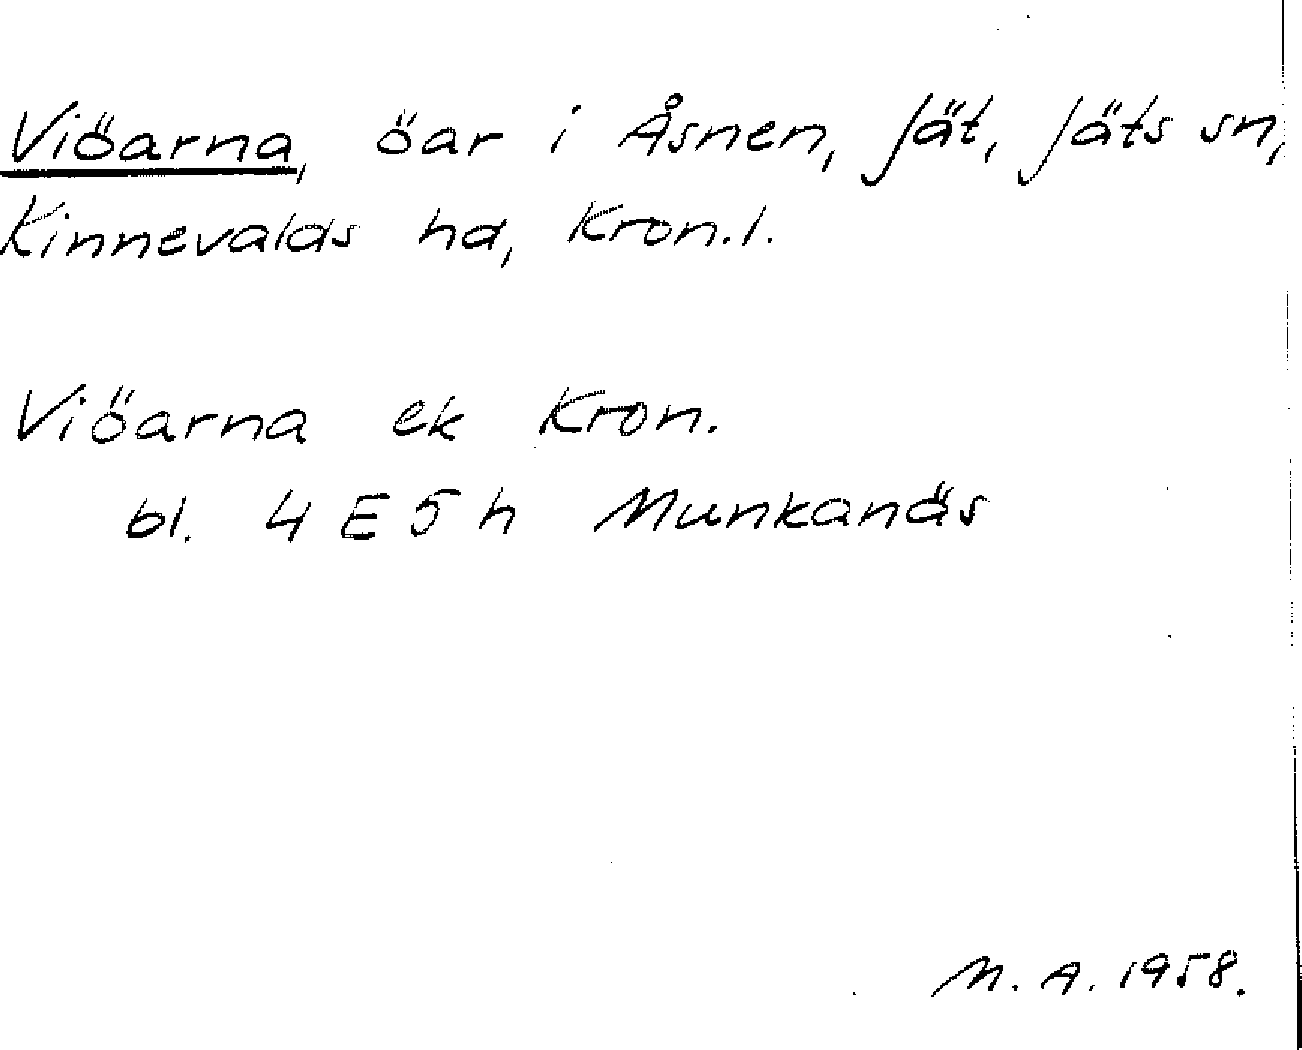 Viöarna, öar i Åsnen, Jät, Jäts sn,
Kinnevalds hd, Kron.l.
Viöarna ek Kron.
bl. 4 E 5 h Munkanäs
M. A. 1958.